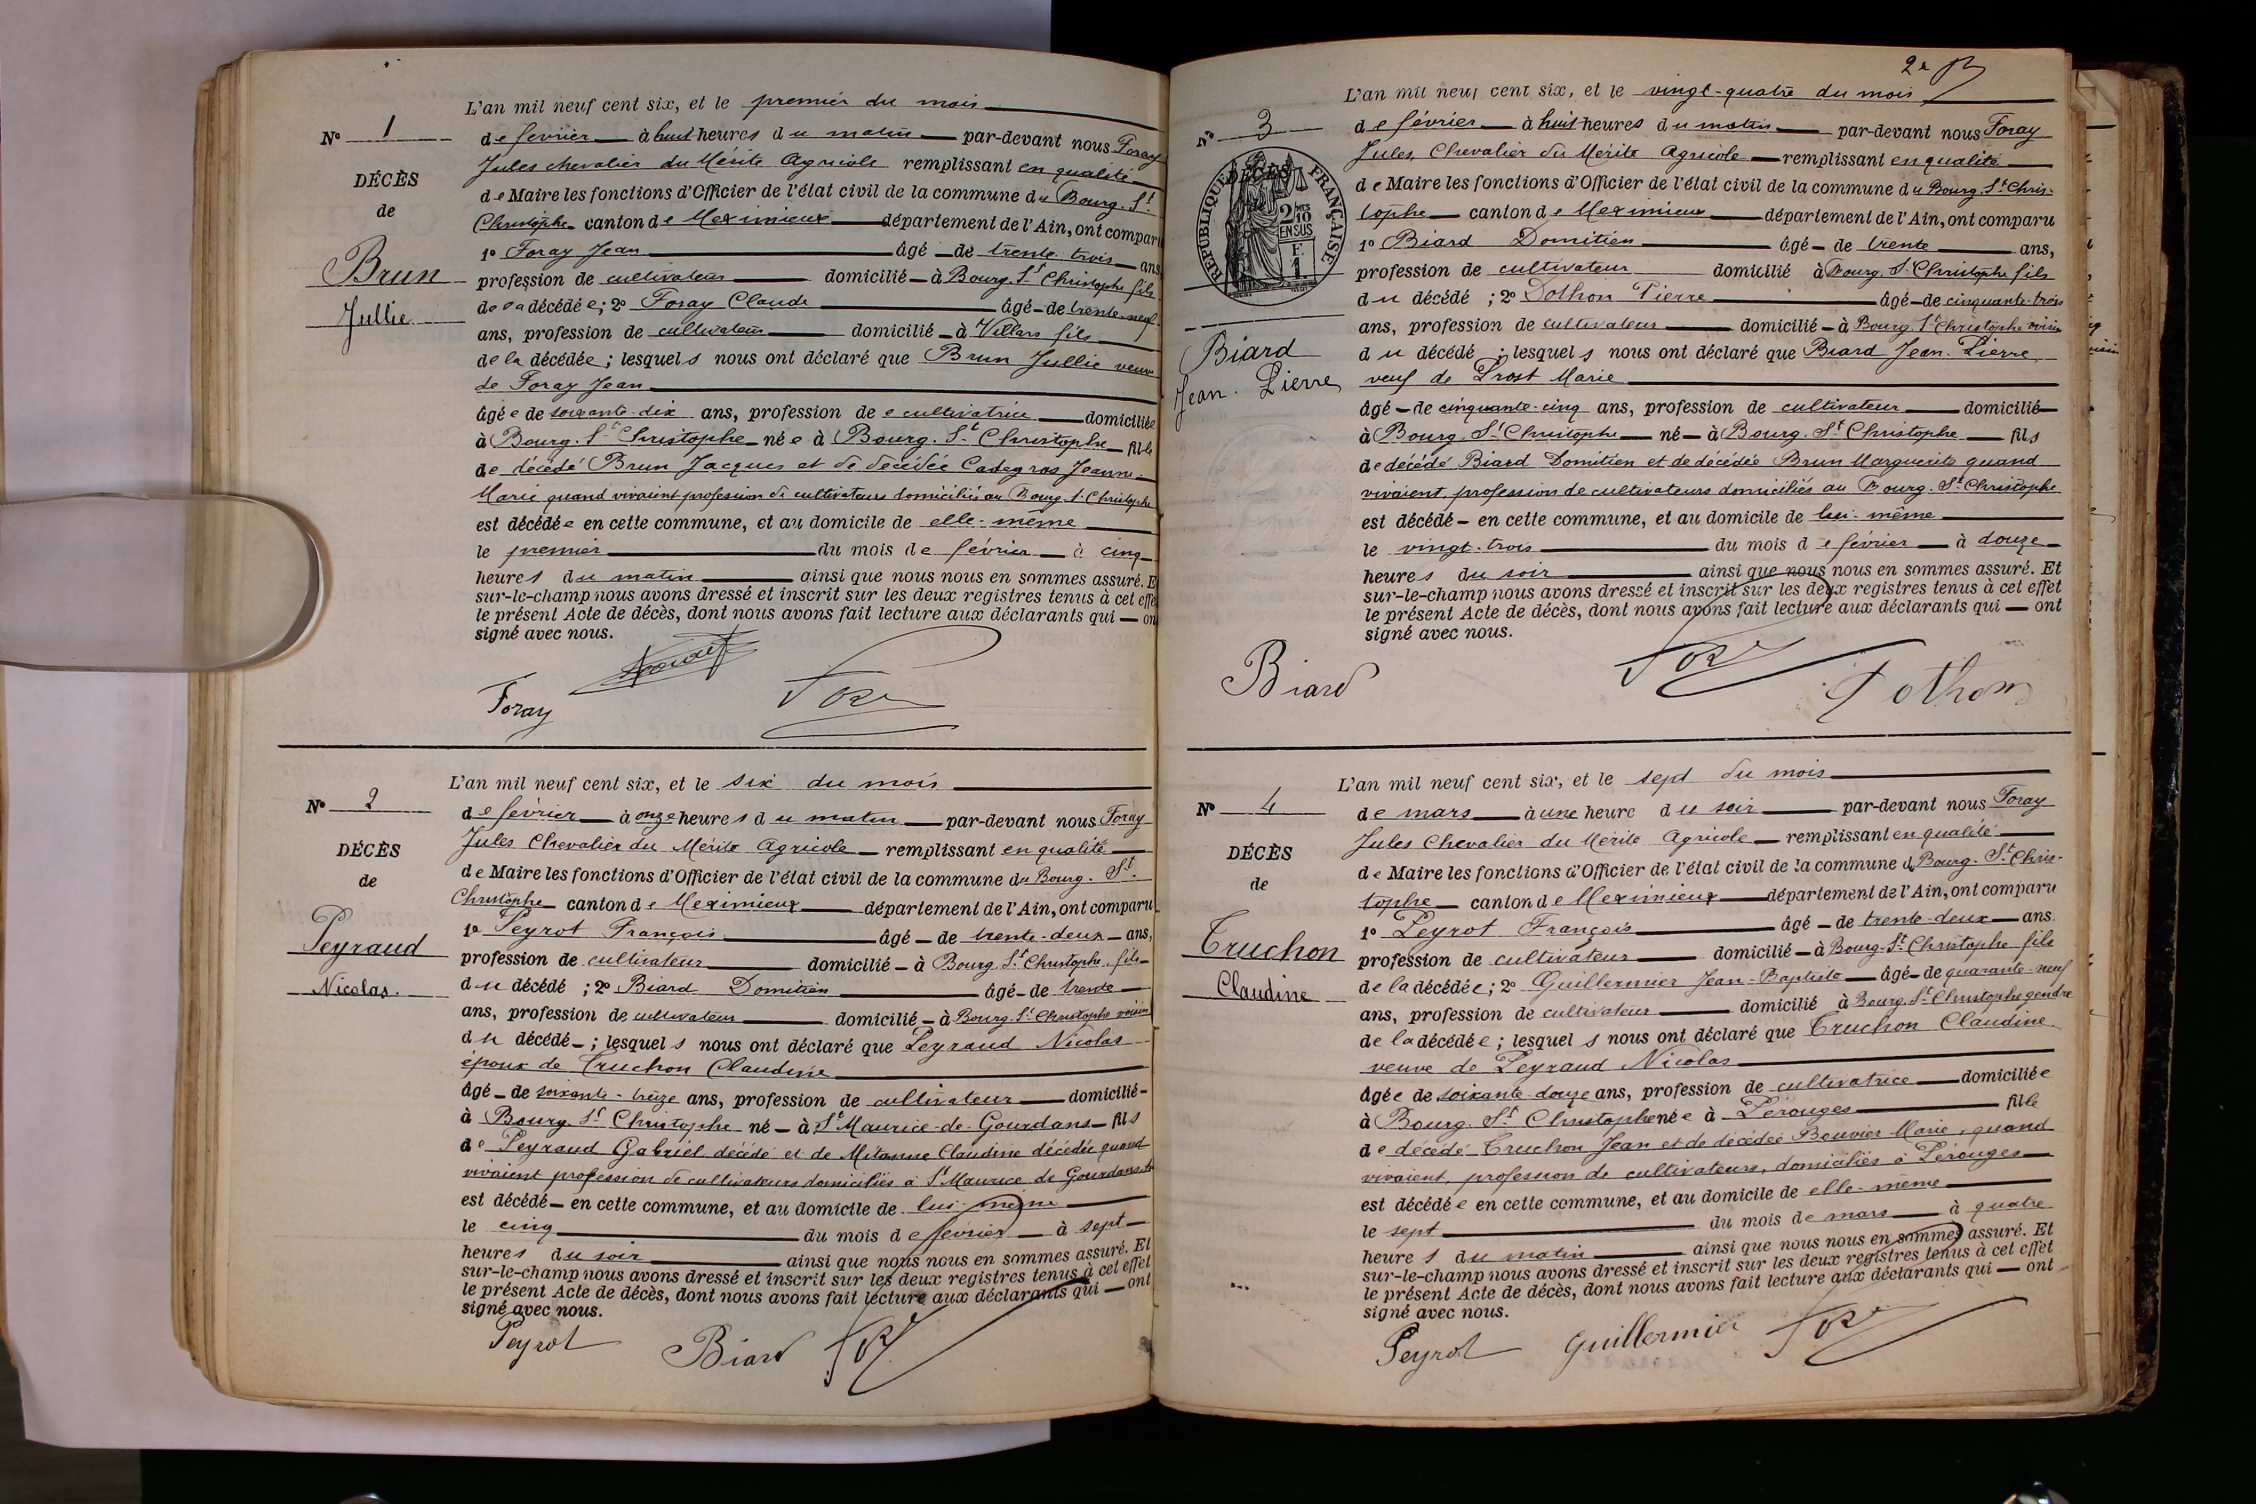 L'an mil neuf cent six, et le premier du mois
No 1
de février à huit heures du matin par-devant nous Foray
Jules chevalier du Mérite Agricole remplissant en qualité
DÉCÈS
de Maire les fonctions d'Officier de l'état civil de la commune du Bourg. St
de
Christophe canton de Meximieux département de l'Ain, ont comparu
1o Foray Jean âgé de trente trois ans
Brun
profession de cultivateur domicilié à Bourg. St Christophe fils
Jullie
de la décédée; 2o Foray Claude âgé de trente-neuf
ans, profession de cultivateur domicilié à Villars fils
de la décédée; lesquels nous ont déclaré que Brun Jullie veuve
de Foray Jean
âgée de soixante-dix ans, profession de cultivatrice domiciliée
à Bourg. St Christophe née à Bourg. St Christophe fille
de décédé Brun Jacques et de décédée Cadegros Jeanne-
Marie quand vivaient profession de cultivateurs domiciliés au Bourg. St Christophe
est décédée en cette commune, et au domicile de elle-même
le premier du mois de février à cinq
heures du matin ainsi que nous nous en sommes assuré. E
sur-le-champ nous avons dressé et inscrit sur les deux registres tenus à cet effet
le présent Acte de décès, dont nous avons fait lecture aux déclarants qui on
signé avec nous.
Foray
L'an mil neuf cent six, et le six du mois
No 2
de février à onze heures du matin par-devant nous Foray
Jules Chevalier du Mérite Agricole remplissant en qualité
DÉCÈS
de Maire les fonctions d'Officier de l'état civil de la commune du Bourg. St
de
Christophe canton de Meximieux département de l'Ain, ont comparu
1o Peyrot François âgé de trente-deux ans,
Peyraud
profession de cultivateur domicilié à Bourg. St Christophe, fils
Nicolas.
du décédé; 2o Biard Domitien âgé de trente
ans, profession de cultivateur domicilié à Bourg. St Christophe voisin
du décédé; lesquels nous ont déclaré que Peyraud Nicolas
époux de Truchon Claudine
âgé de soixante-treize ans, profession de cultivateur domicilié
à Bourg. St Christophe né à St Maurice-de-Gourdans fils
de Peyraud Gabriel décédé et de Claudine décédée quand
vivaient profession de cultivateurs domiciliés à St Maurice de Gourdans
est décédé en cette commune, et au domicile de lui-même
le cinq du mois de février à sept
heures du soir ainsi que nous nous en sommes assuré. Et
sur-le-champ nous avons dressé et inscrit sur les deux registres tenus à cet effet
le présent Acte de décès, dont nous avons fait lecture aux déclarants qui ont
signé avec nous.
Peyrot Biard
2e
L'an mil neuf cent six, et le vingt-quatre du mois
No 3
de février à huit heures du matin par-devant nous Foray
Jules, Chevalier du Mérite Agricole remplissant en qualité
DÉCÈS
RÉPUBLIQUE FRANÇAISE
2 10
EN SUS
de Maire les fonctions d'Officier de l'état civil de la commune du Bourg. St Chris-
tophe canton de Meximieux département de l'Ain, ont comparu
1o Biard Domitien âgé de trente ans,
profession de cultivateur domicilié à Bourg. St Christophe fils
du décédé; 2o Dothon Pierre âgé de cinquante-trois
ans, profession de cultivateur domicilié à Bourg. St Christophe voisin
Biard
Jean-Pierre
du décédé; lesquels nous ont déclaré que Biard Jean-Pierre
veuf de Prost Marie
âgé de cinquante-cinq ans, profession de cultivateur domicilié
à Bourg. St Christophe né à Bourg. St Christophe fils
de décédé Biard Domitien et de décédée Brun Marguerite quand
vivaient, profession de cultivateurs domiciliés au Bourg. St Christophe
est décédé en cette commune, et au domicile de lui-même
le vingt-trois du mois de février à douze
heures du soir ainsi que nous nous en sommes assuré. Et
sur-le-champ nous avons dressé et inscrit sur les deux registres tenus à cet effet
le présent Acte de décès, dont nous avons fait lecture aux déclarants qui ont
signé avec nous.
Biard Dothon
L'an mil neuf cent six, et le sept du mois
No 4
de mars à une heure du soir par-devant nous Foray
Jules Chevalier du Mérite Agricole remplissant en qualité
DÉCÈS
de Maire les fonctions d'Officier de l'état civil de la commune du Bourg. St Chris-
de
tophe canton de Meximieux département de l'Ain, ont comparu
1o Peyrot François âgé de trente-deux ans
Truchon
profession de cultivateur domicilié à Bourg-St Christophe fils
Claudine
de la décédée; 2o Guillermier Jean-Baptiste âgé de quarante-neuf
ans, profession de cultivateur domicilié à Bourg. St Christophe gendre
de la décédée; lesquels nous ont déclaré que Truchon Claudine
veuve de Peyraud Nicolas
âgée de soixante-douze ans, profession de cultivatrice domiciliée
à Bourg. St Christophe née à Pérouges fille
de décédé Truchon Jean et de décédée Bouvier Marie, quand
vivaient, profession de cultivateurs, domiciliés à Pérouges
est décédée en cette commune, et au domicile de elle-même
le sept du mois de mars à quatre
heures du matin ainsi que nous nous en sommes assuré. Et
sur-le-champ nous avons dressé et inscrit sur les deux registres tenus à cet effet
le présent Acte de décès, dont nous avons fait lecture aux déclarants qui ont
signé avec nous.
Peyrot Guillermier